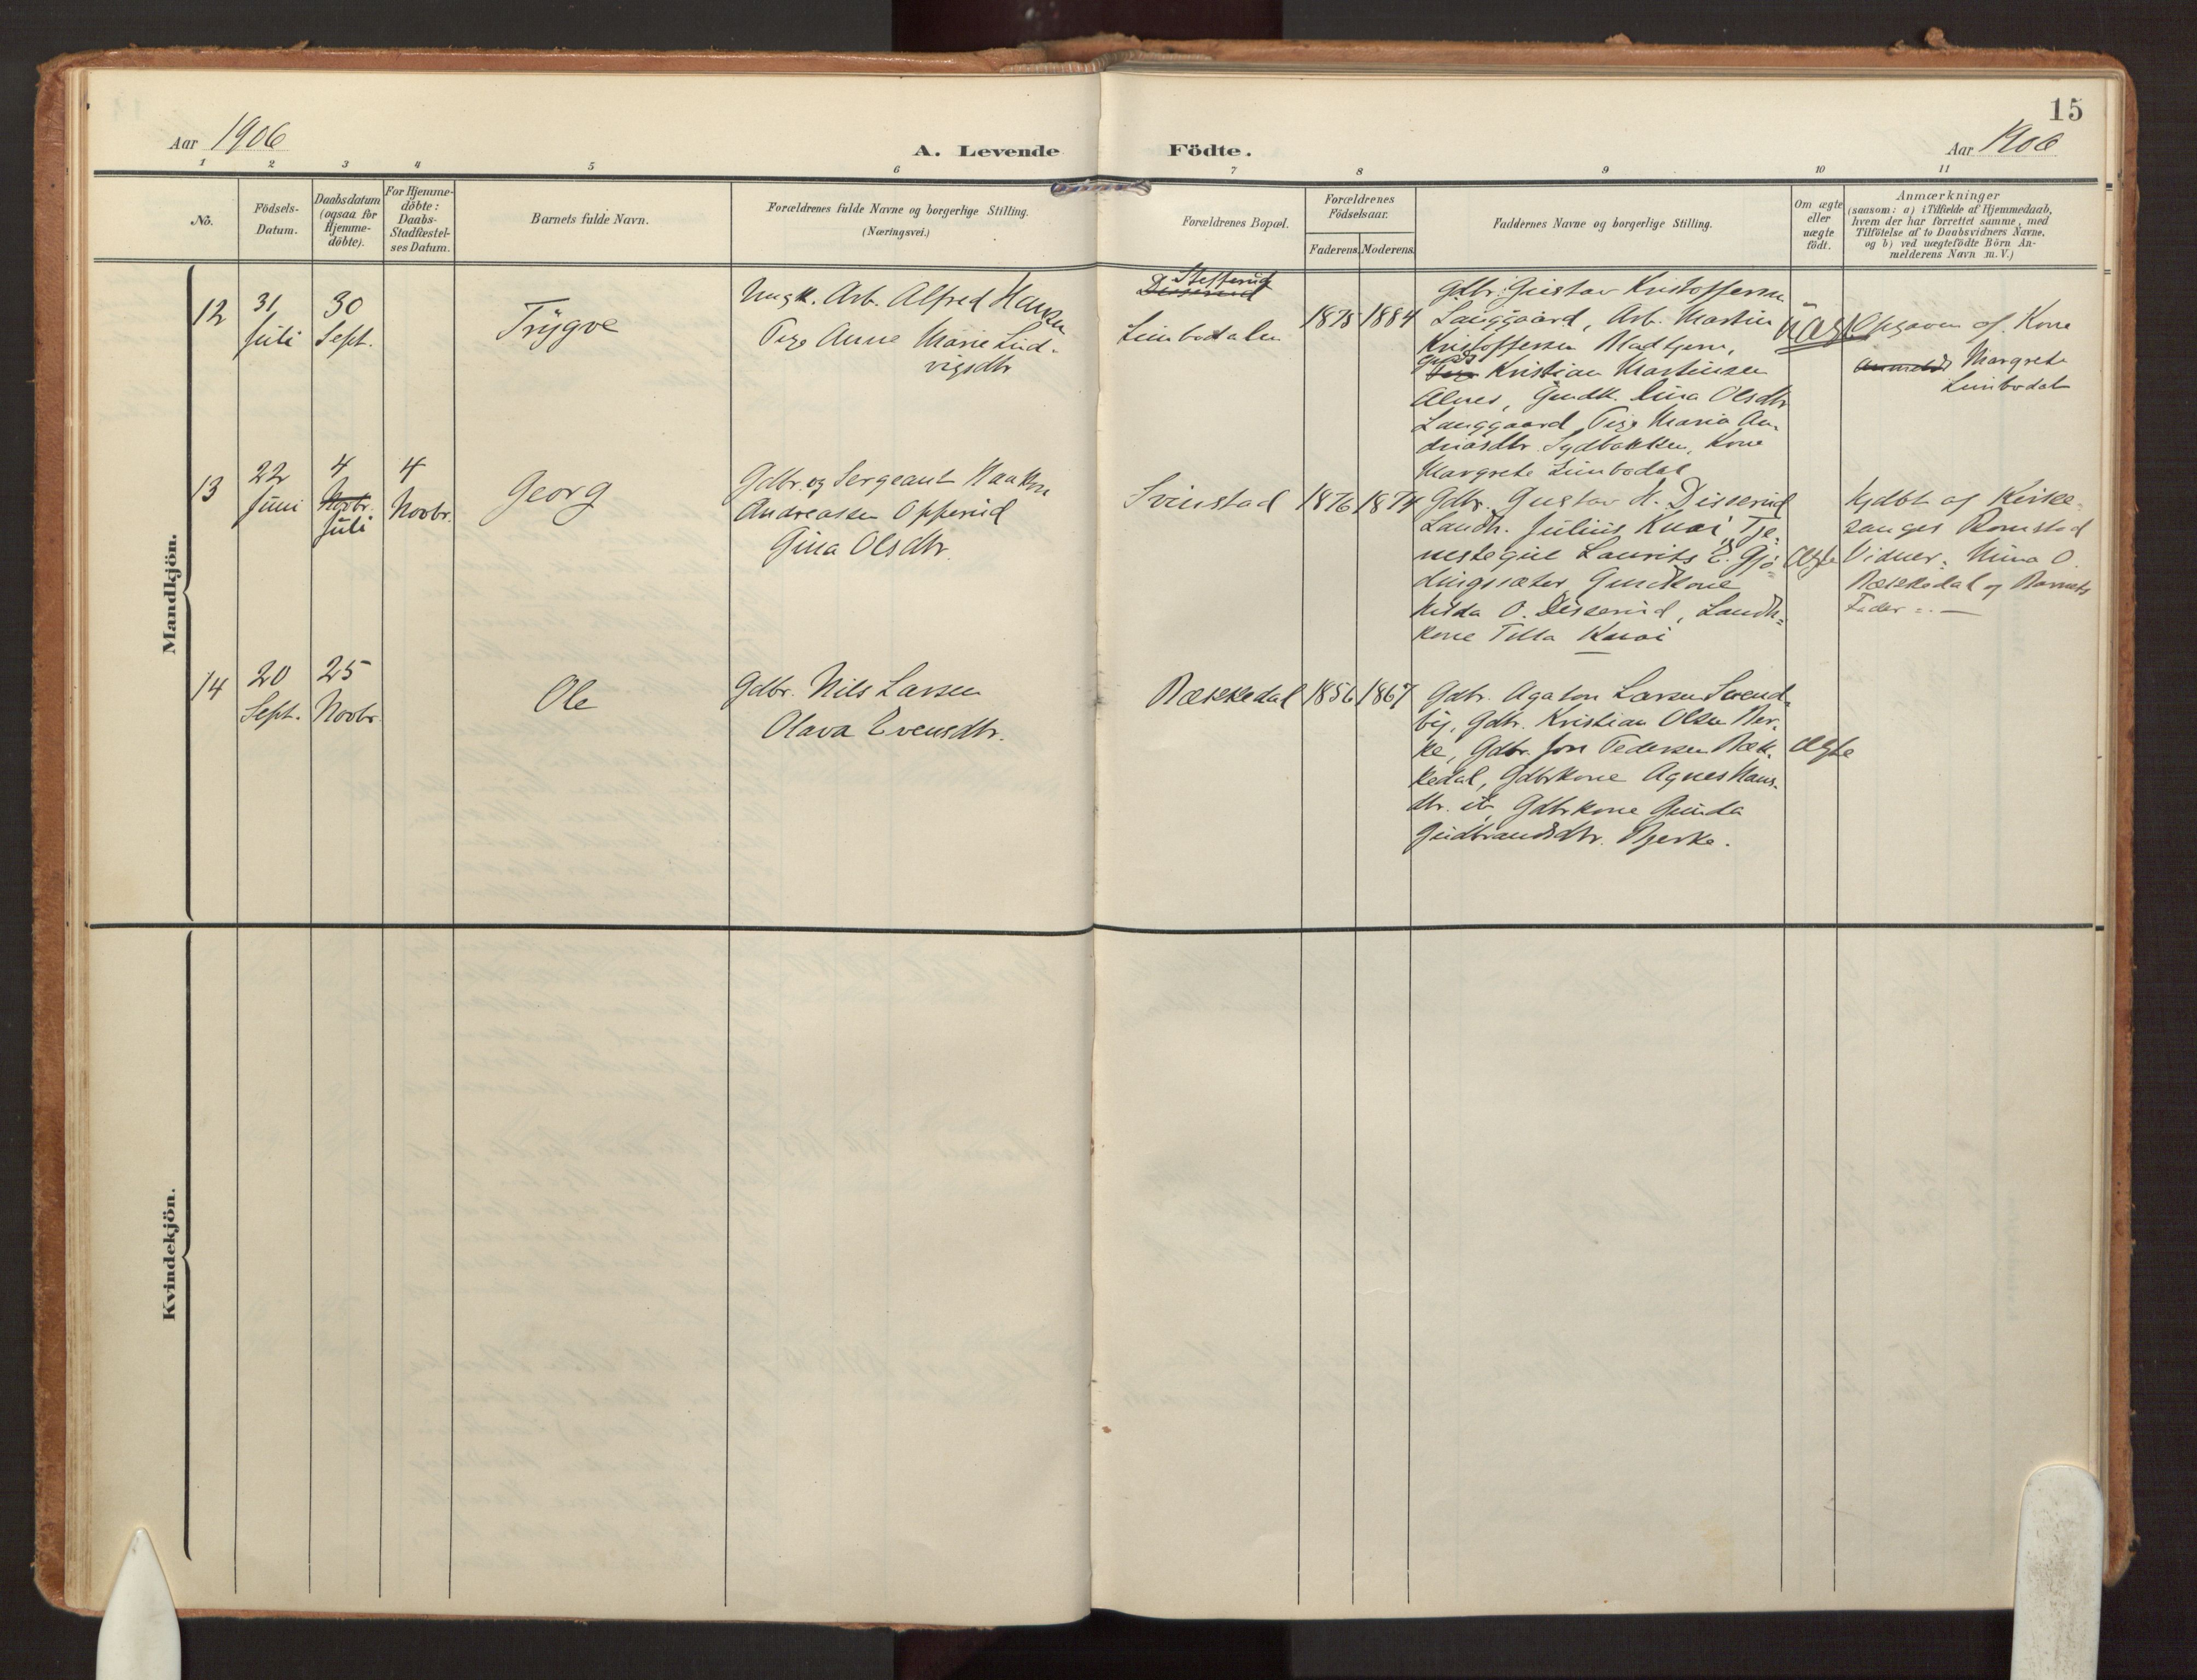 15
Aar 1906
A. Levende Födte.
Aar 1906
1 2 3 4 5 6 7 8 9 10 11
No.
Födsels-
Datum.
Daabsdatum
(ogsaa for
Hjemme-
döbte).
For Hjemme-
döbte:
Daabs-
Stadfæstel-
ses Datum.
Barnets fulde Navn.
Forældrenes fulde Navne og borgerlige Stilling.
(Næringsvei.)
Forældrenes Bopæl.
Forældrenes
Födselsaar.
Faderens. Moderens.
Faddernes Navne og borgerlige Stilling.
Om ægte
eller
uægte
födt.
Anmærkninger
(saasom: a) i Tilfælde af Hjemmedaab,
hvem der har forrettet samme, med
Tilföielse af to Daabsvidners Navne,
og b) ved uægtefödte Börn An-
melderens Navn m. V.)
Mandkjön.
12
31
Juli
30
Sept.
Trygve
Ungk. Arb. Alfred Hansen
Pige Anne Marie Lud-
vigsdtr
Stefferud
Disserud
Limbodalen
1878 1884
Gdbr. Gustav Kristoffersen
Langgaard, Arb. Martin
Kristoffersen
Kristian Martinsen
Alnes, Gmdk. Dina Olsdtr
Langgaard, Pige Maria An-
dreasdtr. Sydbakken, Kone
Margrete Limbodal
uægte
Opgaven af Kone
Anmeldt Margrete
Limbodal
13
22
Juni
4
Novbr.
Juli
4
Novbr.
Georg
Gdbr. og Sergeant Haakon
Andreassen Opperud
Gina Olsdtr.
Svenstad
1876 1874
Gdbr. Gustav H. Disserud
Landh. Julius Knai, Tje-
nestegut Laurits E. Gjö-
dingsæter, Gmdkone
Hilda O. Disserud, Landh-
kone Tilla Knai
Ægte
Hjdbt af Kirke-
sanger Ramstad
Vidner: Nina O.
Bækkedal og Barnets
Fader
14
20
Sept.
25
Novbr.
Ole
Gdbr. Nils Larsen
Olava Evensdtr.
Bækkedal
1856 1867
Gdbr. Agaton Larsen Svend-
by, Gdbr. Kristian Olsen Ber-
ke, Gdbr. Jon Pedersen Bæk-
kedal, Gdbrkone Agnes Hans-
dtr. ib, Gdbrkone Gunda
Gudbrandsdtr. Bjerke.
Ægte
Kvindekjön.